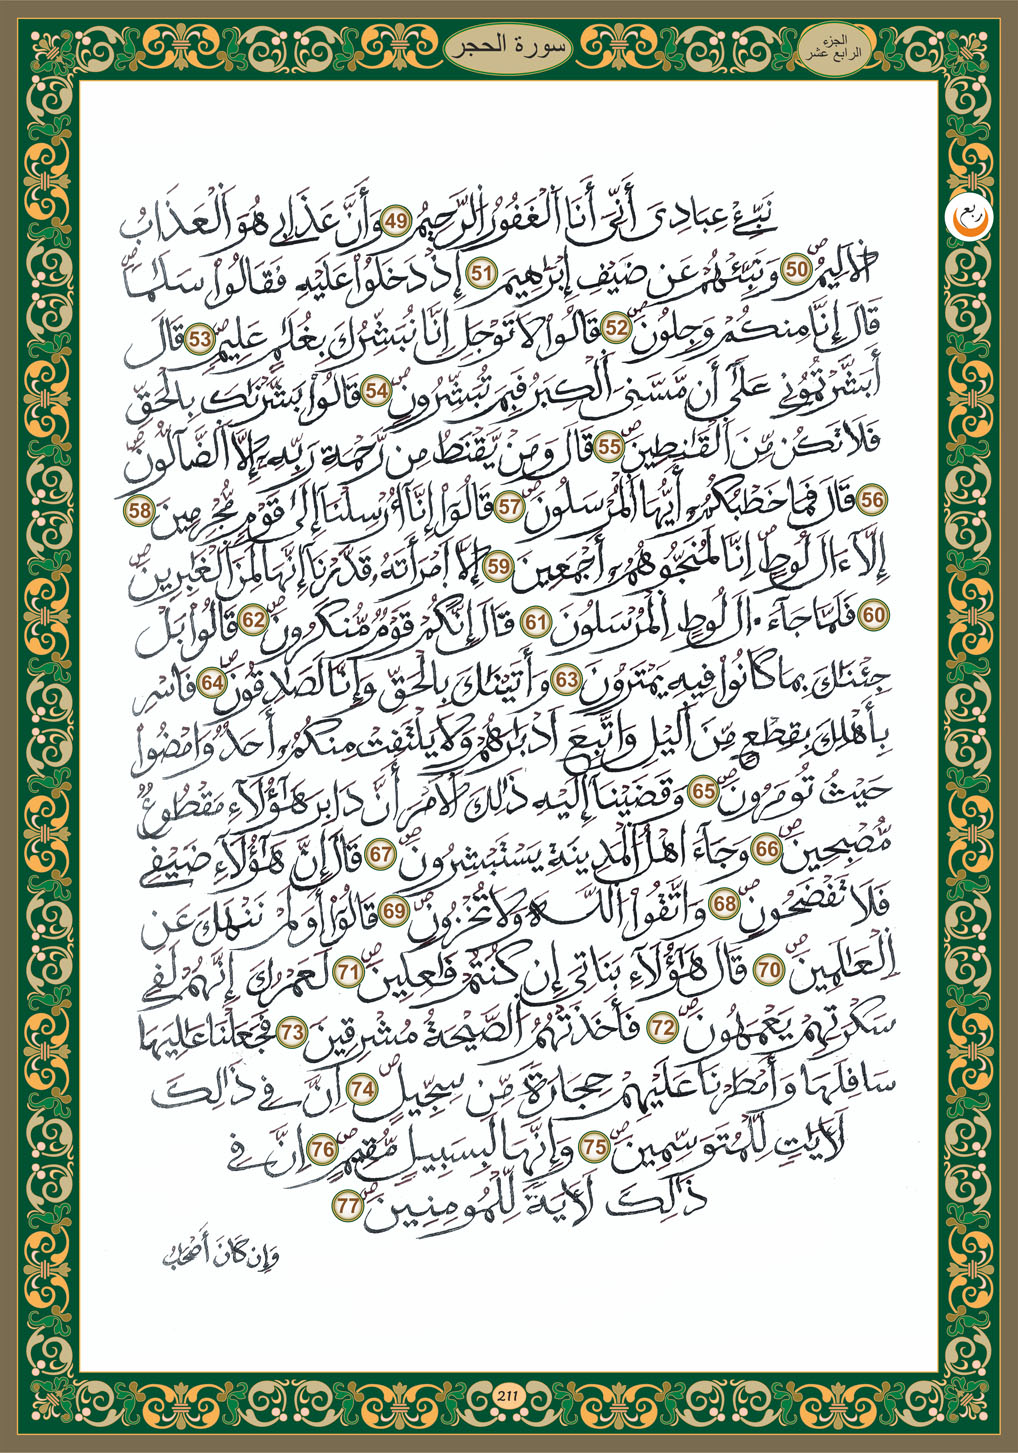 سورة الحجر
الجزء
الرابع عشر
ربع
نَبِّئْ عِبَادِيَ أَنِّيَ أَنَا اَلْغَفُورُ اُلرَّحِيمُ 49 وَأَنَّ عَذَابِي هُوَ اَلْعَذَابُ
اُلَالِيمُ 50 وَنَبِّئْهُمْ عَن ضَيْفِ إِبْرَٰهِيمَ 51 إِذْ دَخَلُواْ عَلَيْهِ فَقَالُواْ سَلَٰماٗ
قَالَ إِنَّا مِنكُمْ وَجِلُونَ 52 قَالُواْ لَا تَوْجَلِ اِنَّا نُبَشِّرُكَ بِغُلَٰمٍ عَلِيمٖ 53 قَالَ
أَبَشَّرْتُمُونِي عَلَىٰ أَن مَّسَّنِيَ اَلْكِبَرُ فَبِمَ تُبَشِّرُونِ 54 قَالُواْ بَشَّرْنَٰكَ بِالْحَقِّ
فَلَا تَكُن مِّنَ اَلْقَٰنِطِينَ 55 قَالَ وَمَنْ يَّقْنَطُ مِن رَّحْمَةِ رَبِّهِۦٓ إِلَّا اَلضَّآلُّونَ
56 قَالَ فَمَا خَطْبُكُمُۥٓ أَيُّهَا اَلْمُرْسَلُونَ 57 قَالُوٓاْ إِنَّآ أُرْسِلْنَآ إِلَىٰ قَوْمٖ مُّجْرِمِينَ 58
إِلَّآ ءَالَ لُوطٍ اِنَّا لَمُنَجُّوهُمُۥٓ أَجْمَعِينَ 59 إِلَّا اَمْرَأَتَهُۥ قَدَّرْنَآ إِنَّهَا لَمِنَ اَلْغَٰبِرِينَ
60 فَلَمَّا جَآءَ ءَالَ لُوطٍ اِلْمُرْسَلُونَ 61 قَالَ إِنَّكُمْ قَوْمٞ مُّنكَرُونَ 62 قَالُواْ بَلْ
جِئْنَٰكَ بِمَا كَانُواْ فِيهِ يَمْتَرُونَ 63 وَأَتَيْنَٰكَ بِالْحَقِّ وَإِنَّا لَصَٰدِقُونَ 64 فَاسْرِ
بِأَهْلِكَ بِقِطْعٖ مِّنَ اَلَّيْلِ وَاتَّبِعَ اَدْبَٰرَهُمْ وَلَا يَلْتَفِتْ مِنكُمُۥٓ أَحَدٞ وَامْضُواْ
حَيْثُ تُومَرُونَ 65 وَقَضَيْنَآ إِلَيْهِ ذَٰلِكَ اَلَامْرَ أَنَّ دَابِرَ هَٰٓؤُلَآءِ مَقْطُوعٞ
مُّصْبِحِينَ 66 وَجَآءَ اَهْلُ اُلْمَدِينَةِ يَسْتَبْشِرُونَ 67 قَالَ إِنَّ هَٰٓؤُلَآءِ ضَيْفِي
فَلَا تَفْضَحُونِ 68 وَاتَّقُواْ اُللَّهَ وَلَا تُخْزُونِ 69 قَالُوٓاْ أَوَلَمْ نَنْهَكَ عَنِ
اِلْعَٰلَمِينَ 70 قَالَ هَٰٓؤُلَآءِ بَنَاتِيَ إِن كُنتُمْ فَٰعِلِينَ 71 لَعَمْرُكَ إِنَّهُمْ لَفِي
سَكْرَتِهِمْ يَعْمَهُونَ 72 فَأَخَذَتْهُمُ اُلصَّيْحَةُ مُشْرِقِينَ 73 فَجَعَلْنَا عَٰلِيَهَا
سَافِلَهَا وَأَمْطَرْنَا عَلَيْهِمْ حِجَارَةٗ مِّن سِجِّيلٍ 74 اِنَّ فِي ذَٰلِكَ
لَأٓيَٰتٖ لِّلْمُتَوَسِّمِينَ 75 وَإِنَّهَا لَبِسَبِيلٖ مُّقِيمٍ 76 اِنَّ فِي
ذَٰلِكَ لَأٓيَةٗ لِّلْمُومِنِينَ 77
وَإِن كَانَ أَصْحَٰبُ
211